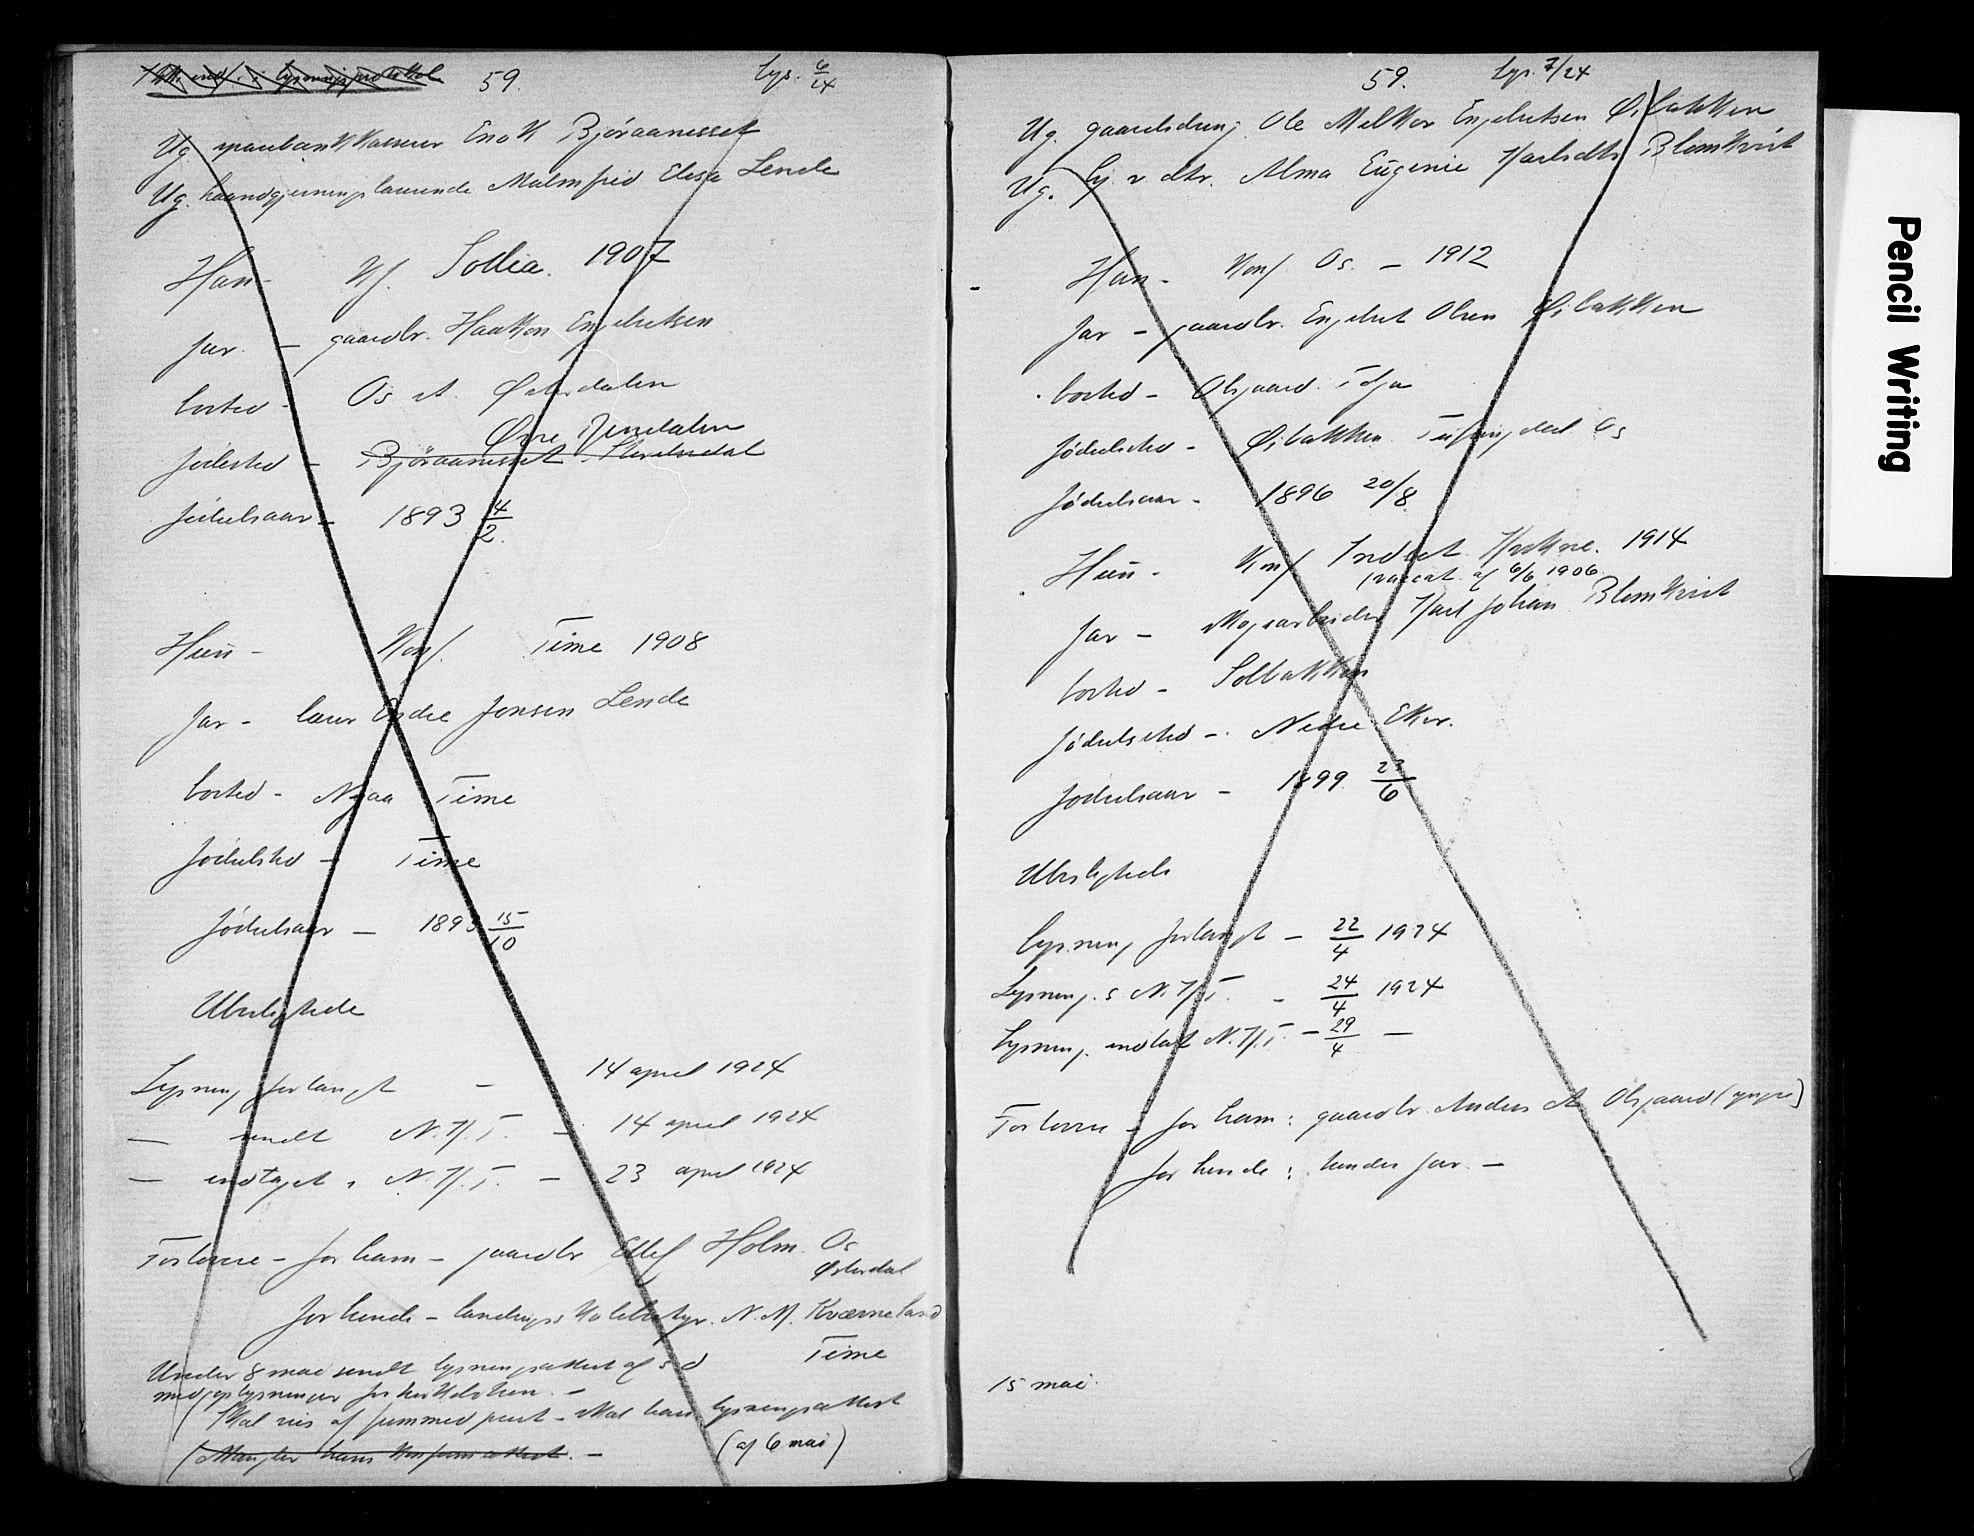 59. Lys. 6/24
Ug. sparebankkasserer Enok Bjøraanesset
Ug. haandgjerningslærerinde Malmfrid Elisa Lende
Han - Kf. Sollia. 1907
far. - gaardbr. Haakon Engebretsen
bosted - Os i Østerdalen
Øvre Rendalen
fødested - Bjøraanesset
fødselsaar - 1893 4/2.
Hun - Konf. Time 1908
far - lærer Jonsen Lende
bosted - Njaa Time
fødested - Time
fødselsaar - 1893 15/10
Ubeslegtede
Lysning forlangt - 14 april 1924
— sendt N.K.T. - 14 april 1924
— indtaget i N.K.T. - 23 april 1924
Forlovere - for ham - gaardbr Holm. Os
Østerdal
for hende - N. M. Kverneland
Time
Under 8 mai sendt lysningsattest af s d
med oplysninger for kirkeboken. -
(Skal vies af - skal have lysningsattest
(Mangler hans konfirm.attest. - (af 6 mai)
59. Lys. 7/24
Ug. gaardsdreng Ole Melkor Engebretsen Øibakken
Ug. Alma Eugenie Karlsdtr. Blomkvist
Han - Konf Os. - 1912
far - gaardbr. Engebret Olsen Øibakken
bosted - Olsgaard. Tolga
fødselssted - Øibakken. Tufsingdal Os
fødselsaar - 1896 20/8
Hun - Konf 1914
vaccat. af 6/6 1906
far - skogsarbeider Karl Johan Blomkvist
bosted - Solbakken
fødselssted - Nedre Eker.
fødselsaar - 1899 23/6
Ubeslegtede
Lysning forlangt - 22/4 1924
Lysning. s. N.K.T. - 24/4 1924
Lysning. indtat N.K.T. - 29/4 —
Forlovere - for ham: gaardbr. Anders Olsgaard (yngre)
for hende: hendes far. -
15 mai.
Pencil Writing